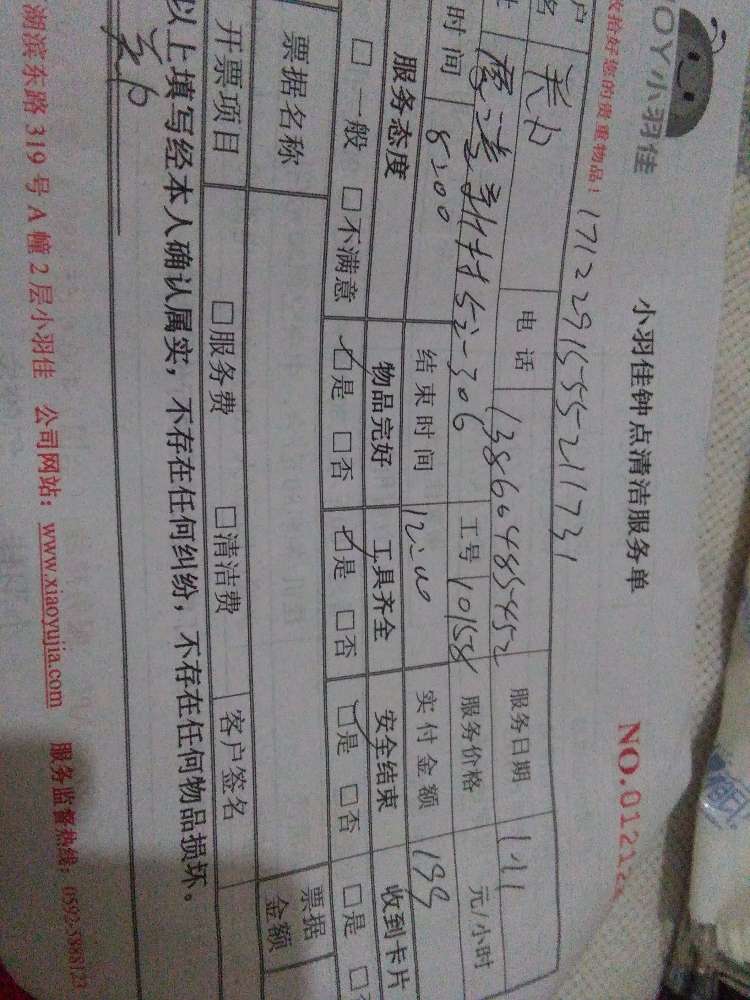 JOY小羽佳
收拾好您的贵重物品！
小羽佳钟点清洁服务单
NO.01212
17122915555211731
户名 电话 13860485452 服务日期 1.1
52-306 工号 10158 服务价格 元/小时
时间 8:00 结束时间 12:00 实付金额 199
服务态度 物品完好 工具齐全 安全结束 收到卡片
□一般 □不满意 □是 □否 □是 □否 □是 □否 □是
票据名称 票据金额
开票项目 □服务费 □清洁费 客户签名
以上填写经本人确认属实，不存在任何纠纷，不存在任何物品损坏。
湖滨东路 319 号 A 幢 2 层小羽佳 公司网站：www.xiaoyujia.com 服务监督热线：0592-5888123